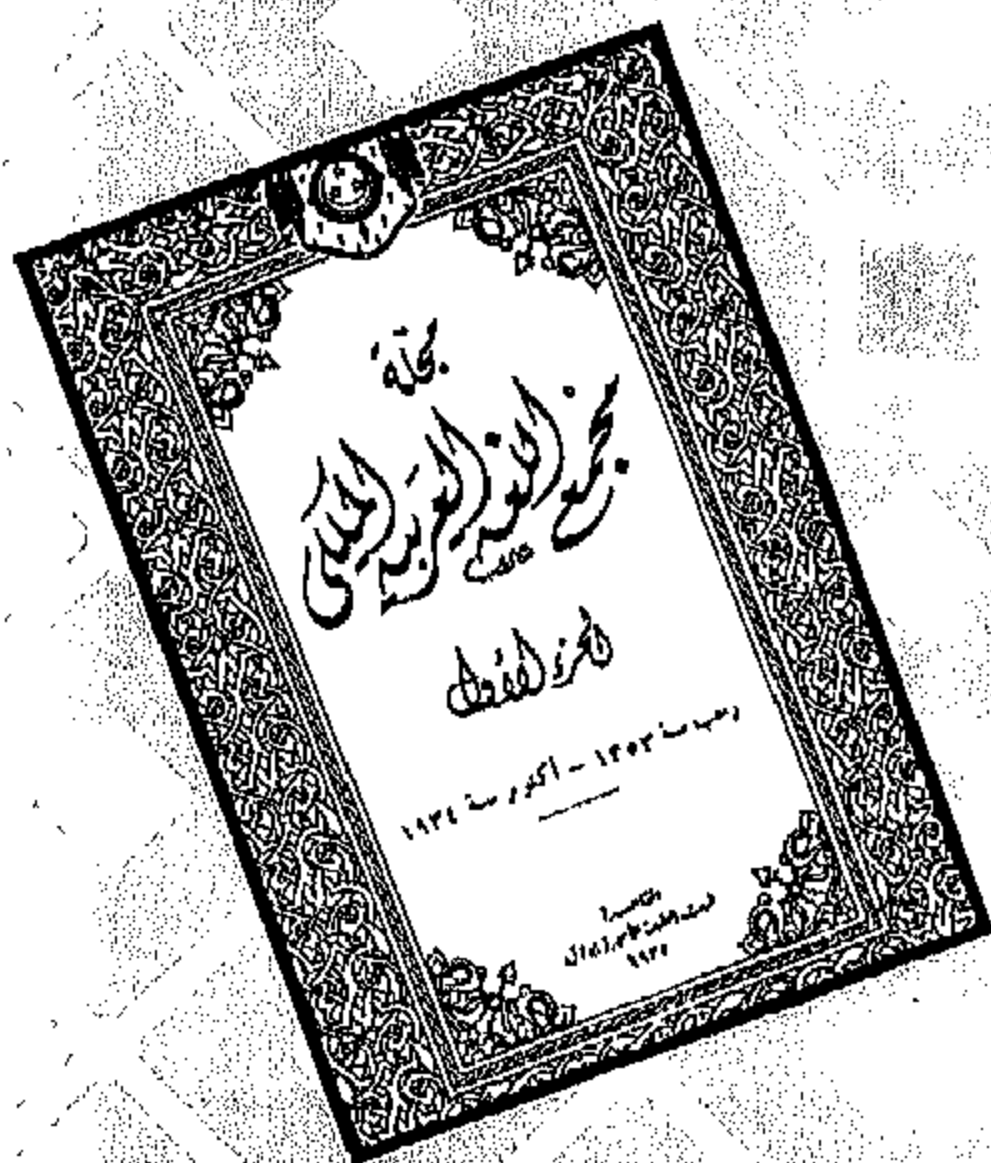 مجلة
مجمع اللغة العربية الملكي
الجزء الأول
رجب سنة ١٣٥٣ - أكتوبر سنة ١٩٣٤
القاهرة